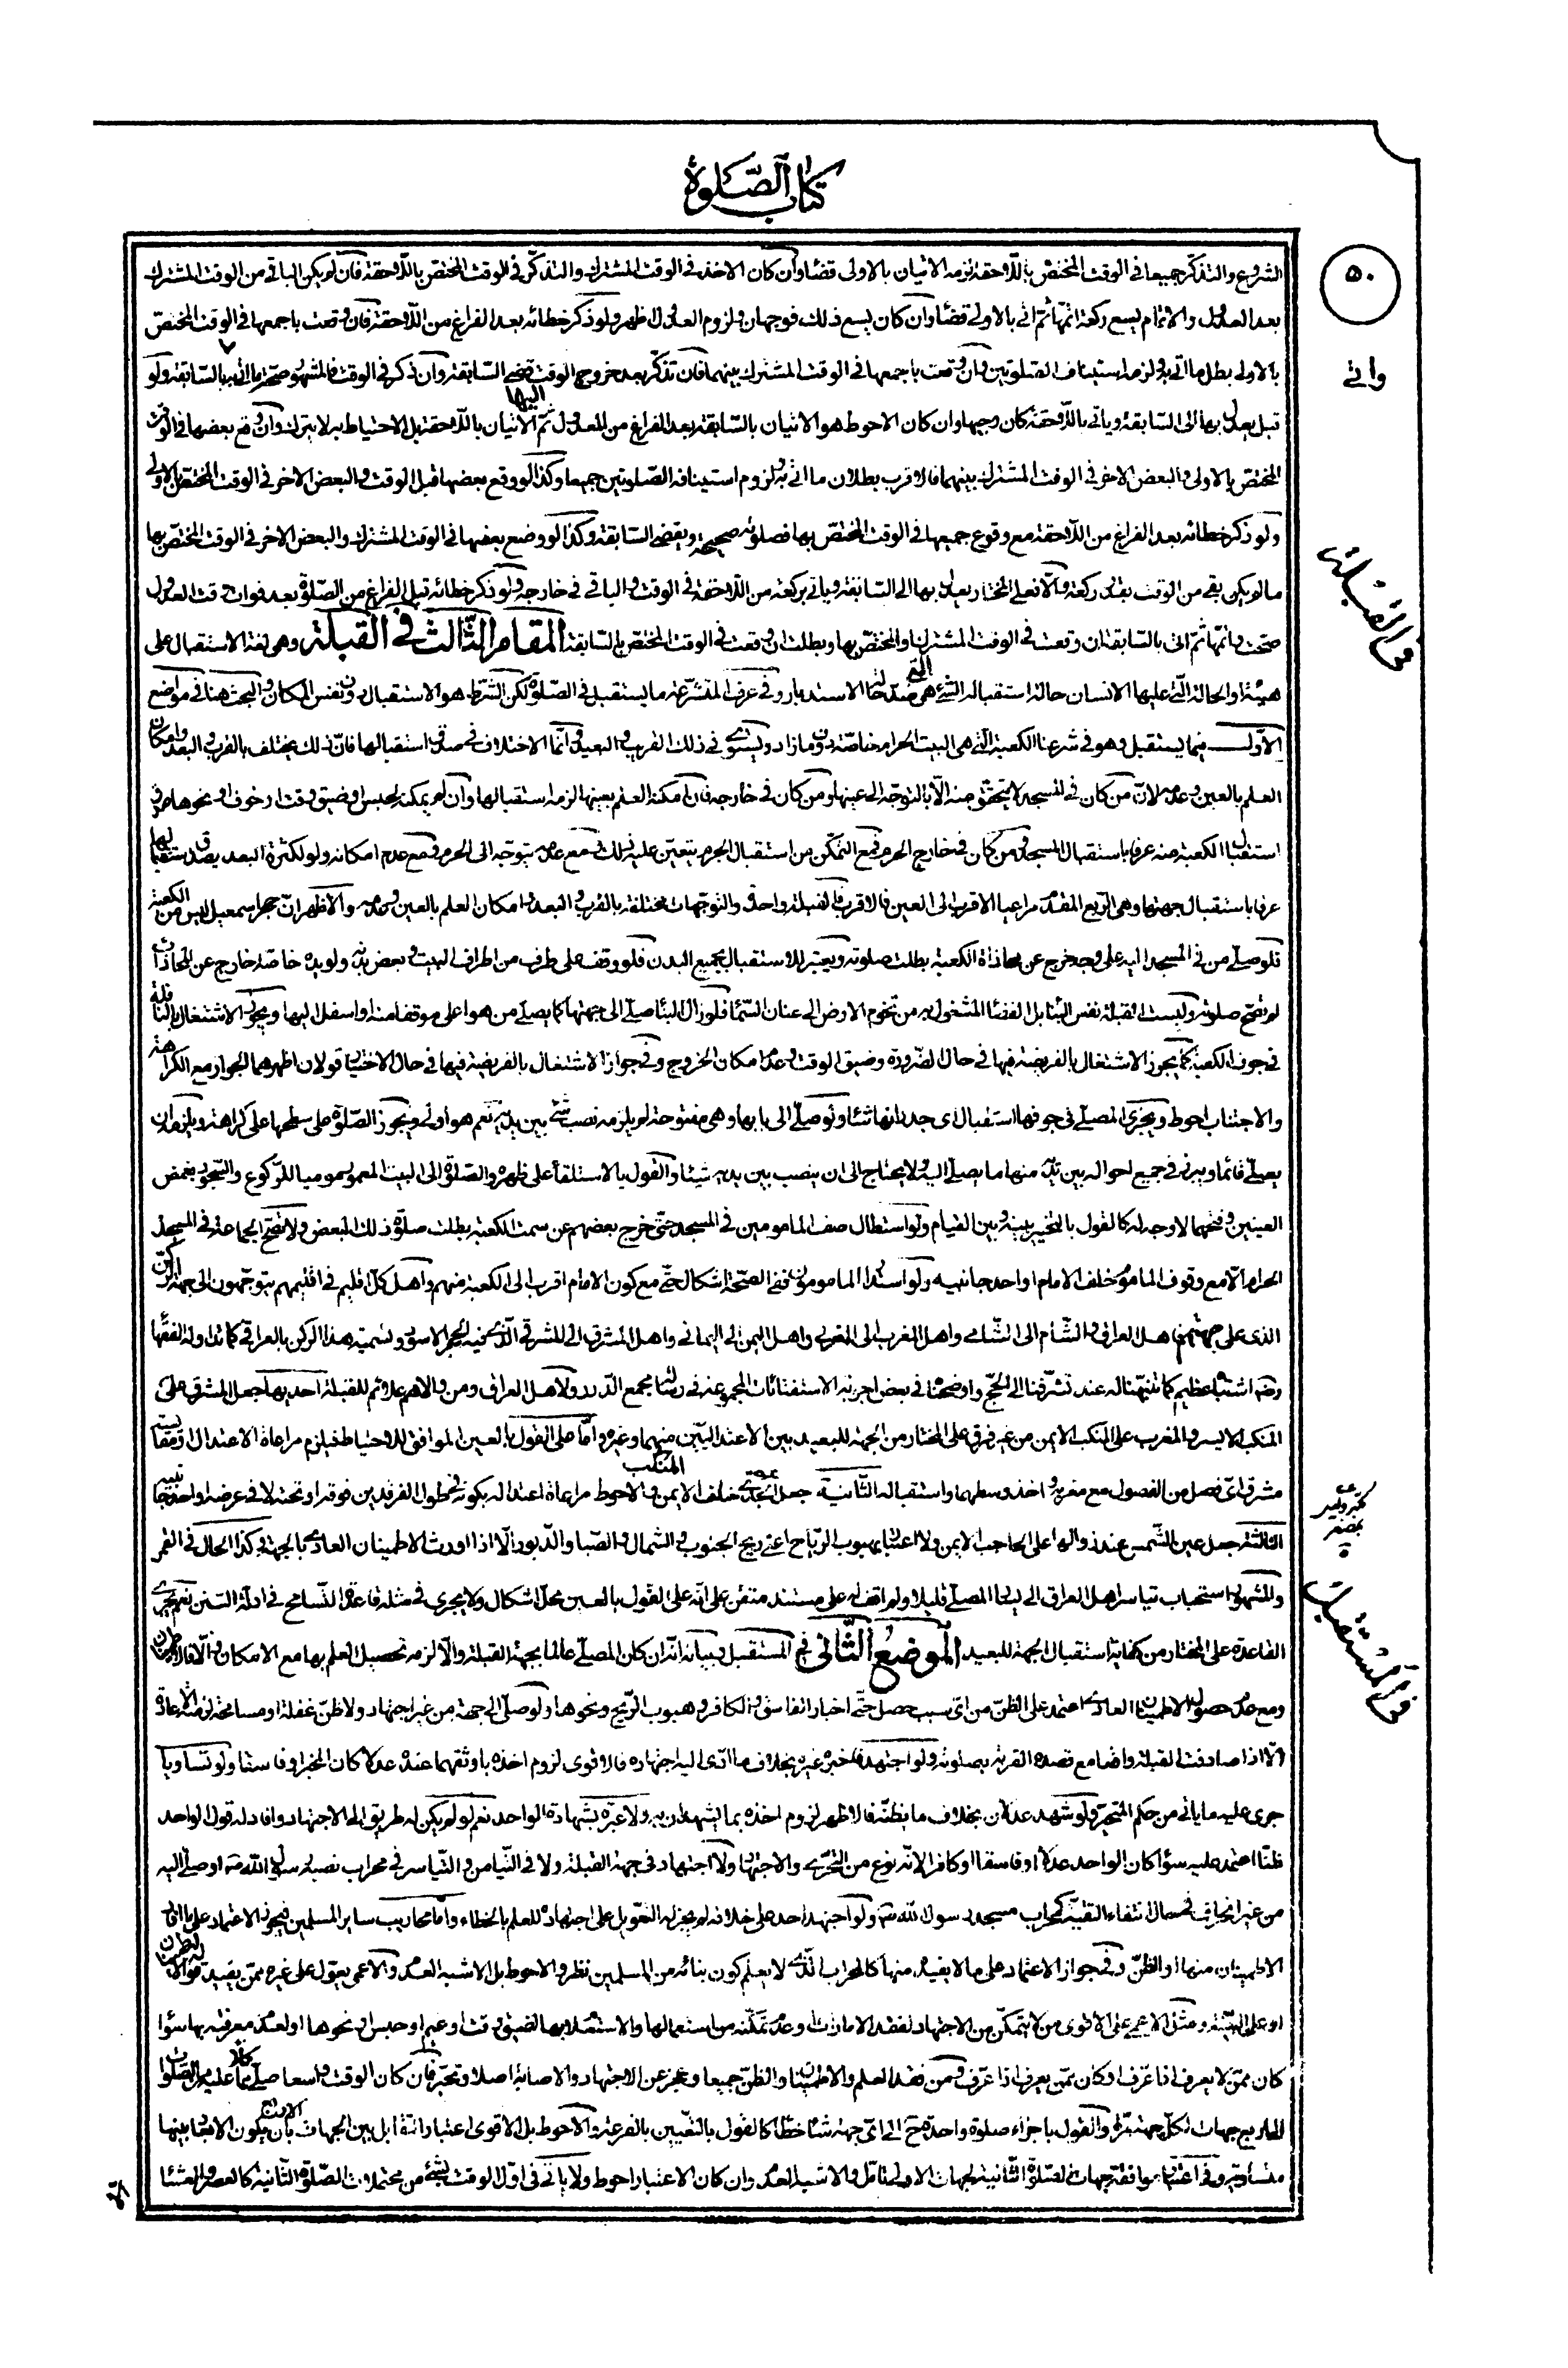 كتاب الصّلوة
٥٠
الشروع والتذكر جميعا في الوقت المختصّ باللّاحقة لزمه الاتيان بالاولى قضاء وان كان الاخذ في الوقت المشترك والتذكّر في الوقت المختصّ باللّاحقة فان لم يكن الباقي من الوقت المشترك
بعد العدول والاتمام يسع ركعة اتمّها ثمّ اتى بالاولى قضاء وان كان يسع ذلك فوجهان ولزوم العدول اظهر ولو ذكر خطائه بعد الفراغ من اللّاحقة فان وقعت باجمعها في الوقت المختصّ
بالاولى بطل ما اتى به ولزمه استيناف الصّلوتين وان وقعت باجمعها في الوقت المشترك بينهما فان تذكّر بعد خروج الوقت قضى السّابقة وان ذكر في الوقت فالمشهور صحّة ما اتى به بالسّابقة ولو
قيل يعدل بها الى السّابقة ويأتي باللّاحقة كان وجيها وان كان الاحوط هو الاتيان بالسّابقة بعد الفراغ من المعدول اليها ثمّ الاتيان باللّاحقة بل الاحتياط به لا يترك وان وقع بعضها في الوقت
المختصّ بالاولى والبعض الاخر في الوقت المشترك بينهما فالاقرب بطلان ما اتى به ولزوم استيناف الصّلوتين جميعا وكذا لو وقع بعضها قبل الوقت والبعض الاخر في الوقت المختصّ بالاولى
ولو ذكر خطائه بعد الفراغ من اللّاحقة مع وقوع جميعها في الوقت المختصّ بها فصلوته صحيحة ويقضى السّابقة وكذا لو وقع بعضها في الوقت المشترك والبعض الاخر في الوقت المختصّ بها
ما لم يكن بقى من الوقت بقدر ركعة والّا فعلى المختار يعدل بها الى السّابقة وياتي بركعة من اللّاحقة في الوقت والباقي في خارجه ولو ذكر خطائه قبل الفراغ من الصّلوة بعد فوات وقت العدول
صحّت واتمّها ثمّ اتى بالسّابقة ان وقعت في الوقت المشترك او المختصّ بها وبطلت ان وقعت في الوقت المختصّ بالسّابقة المقام الثّالث في القبلة وهي لغة الاستقبال على
هيئة او الحالة الّتي عليها الانسان حالة استقباله الشّيء الّتي هي ضدّ حالة الاستدبار وفي عرف المتشرّعة ما يستقبل في الصّلوة لكن الشّرط هو الاستقبال دون نفس المكان والبحث هنا في مواضع
الاوّل فيما يستقبل وهو في شرعنا الكعبة الّتي هي البيت الحرام خاصّة دون ما زاد ويستوى في ذلك القريب والبعيد وانّما الاختلاف في صدق استقبالها فانّ ذلك يختلف بالقرب والبعد وامكان
العلم بالعين وعدمه لانّ من كان في المسجد لا يتحقّق منه الّا بالتوجّه الى عينها ومن كان في خارجه فان امكنه العلم بعينها لزمه استقبالها وان لم يمكنه لحبس او ضيق وقت او خوف او نحوها صدق
استقبال الكعبة منه عرفا باستقبال المسجد ومن كان في خارج الحرم فمع التمكّن من استقبال الحرم يتعيّن عليه ذلك ومع عدمه يتوجّه الى الحرم ومع عدم امكانه ولو لكثرة البعد يصدق استقبالها
عرفا باستقبال جهتها وهي الرّبع المقدّم مراعيا الاقرب الى العين فالاقرب فالقبلة واحدة والتوجّهات مختلفة بالقرب والبعد وامكان العلم بالعين وعدمه والاظهر انّ حجر اسمعيل ليس من الكعبة
فلو صلّى من في المسجد اليه على وجه خرج عن محاذاة الكعبة بطلت صلوته ويعتبر للاستقبال بجميع البدن فلو وقف على طرف من اطراف البيت وبعض بدنه ولو يده خاصّة خارج عن المحاذاة
لم تصحّ صلوته وليست القبلة نفس البناء بل الفضاء المشغول به من تخوم الارض الى عنان السّماء فلو زال البناء صلّى الى جهتها كما يصلّي من هو اعلى موقفا منه او اسفل اليها ويجوز الاشتغال بالنّافلة
في جوف الكعبة كما يجوز الاشتغال بالفريضة فيها في حال الضّرورة وضيق الوقت وعدم امكان الخروج وفي جواز الاشتغال بالفريضة فيها في حال الاختيار قولان اظهرهما الجواز مع الكراهة
والاجتناب احوط ويجزى المصلّي في جوفها استقبال اى جدرانها شاء ولو صلّى الى بابها وهي مفتوحة لم يلزمه نصب شيء بين يديه نعم هو اولى ويجوز الصّلوة على سطحها على كراهة ويلزمه ان
يصلّي قائما ويبرز في جميع احواله بين يديه منها ما يصلّى اليه ولا يحتاج الى ان ينصب بين يديه شيئا والقول بالاستلقاء على ظهره والصّلوة الى البيت المعمور موميا للرّكوع والسّجود بغمض
العينين وفتحهما لا وجه له كالقول بالتخيير بينه وبين القيام ولو استطال صف المامومين في المسجد حتّى خرج بعضهم عن سمت الكعبة بطلت صلوة ذلك البعض ولا تصحّ الجماعة في المسجد
الحرام الّا مع وقوف الماموم خلف الامام او احد جانبيه ولو استدار المامومون ففي الصّحّة اشكال حتّى مع كون الامام اقرب الى الكعبة منهم واهل كلّ اقليم في اقليمهم يتوجّهون الى جهة الرّكن
الذي على جهتهم فاهل العراق الشّام الى الشّامي واهل المغرب الى المغربي واهل اليمن الى اليماني واهل المشرق الى المشرقي الّذي فيه الحجر الاسود وتسمية هذا الرّكن بالعراقي كما تداوله الفقهاء
اشتباه عظيم كما تنبّهنا له عند تشرّفنا الى الحجّ واوضحنا في بعض اجوبة الاستفتائات المجموعة في رسالتنا مجمع الدّرر ولاهل العراق ومن والاهم علائم للقبلة احديها جعل المشرق على
المنكب الايسر والمغرب على المنكب الايمن من غير فرق على المختار من الجهة للبعيد بين الاعتداليّين منهما وغيره وامّا على القول بالعين الموافق للاحتياط فيلزم مراعاة الاعتدال او مقايسة
مشرق اىّ فصل من الفصول مع مغربه واخذ وسطهما واستقباله الثّانية جعل الجدي خلف المنكب الايمن والاحوط مراعاة اعتداله بكونه في طول الفرقدين فوقه او تحته لا في عرضه او احد جانبيه
الثالثة جعل عين الشّمس عند زوالها على الحاجب الايمن ولا اعتبار بهبوب الرّياح اعني ريح الجنوب والشمال والصّبا والدّبور الّا اذا اورث الاطمينان العادي بالجهة وكذا الحال في القمر
والمشهور استحباب تياسر اهل العراق الى يسار المصلّى قليلا ولم اقف له على مستند متقن على انّه على القول بالعين محلّ اشكال ولا يجرى في مثله قاعدة التّسامح في ادلّة السّنن نعم تجرى
القاعدة على المختار من كفاية استقبال الجهة للبعيد الموضع الثّاني في المستقبل وبيانه انّه ان كان المصلّى عالما بجهة القبلة والّا لزمه تحصيل العلم بها مع الامكان والّا فالاطمينان
ومع عدم حصول الاطمينان العادي اعتمد على الظنّ من اىّ سبب حصل حتّى اخبار الفاسق والكافر وهبوب الرّيح ونحوها ولو صلّى الى جهة من غير اجتهاد ولا ظنّ غفلة او مسامحة لزمته الاعادة
الّا اذا صادفت القبلة واقعا مع قصده القربة بصلوته ولو اجتهد فاخبره غيره بخلاف ما ادّى اليه اجتهاده فالاقوى لزوم اخذه باوثقهما عنده عدلا كان المخبر او فاسقا ولو تساويا
جرى عليه ما ياتي من حكم المتحيّر ولو شهد عدلان بخلاف ما يظنّه فالاظهر لزوم اخذه بما يشهدان به ولا عبرة بشهادة الواحد نعم لو لم يكن له طريق الى الاجتهاد وافاد له قول الواحد
ظنّا اعتمد عليه سواء كان الواحد عدلا او فاسقا او كافرا لانّه نوع من التحرّي والاجتهاد ولا اجتهاد في جهة القبلة ولا في التّيامن والتّياسر في محراب نصبه رسول الله ص او صلّى اليه
من غير انحراف في حال انتفاء التقيّة كمحراب مسجد رسول الله ص ولو اجتهد احد على خلافه لم يجز له التعويل على اجتهاده للعلم بالخطاء وامّا محاريب ساير المسلمين فيجوز الاعتماد على ما افاد
الاطمينان منها او الظنّ وفي جواز الاعتماد على ما لا يفيد منها كالمحراب الّذي لا يعلم كون بنائه من المسلمين نظر والاحوط بل الاشبه العدم والاعمى يعوّل على غيره ممّن يفيد قوله الاطمينان
او على البيّنة ومثل الاعمى على الاقوى من لا يتمكّن من الاجتهاد لفقد الامارات او عدم تمكّنه من استعمالها والاستدلال بها لضيق وقت او غيم او حبس او نحوها او لعدم معرفته بها سواء
كان ممّن لا يعرف اذا عرّف او كان ممّن يعرف اذا عرّف ومن فقد العلم والاطمينان والظنّ جميعا وعجز عن الاجتهاد والاصابة اصلا وتحيّر فان كان الوقت واسعا صلّى كلّا ممّا عليه من الصّلوات
الى اربع جهات لكلّ جهة مرّة والقول باجزاء صلوة واحدة ح الى اىّ جهة شاء خطاء كالقول بالتّعيين بالقرعة والاحوط بل الاقوى اعتبار التّقابل بين الجهات الاربع بان يكون الابعاد بينها
متساوية وفي اعتبار موافقة جهات الصّلوة الثّانية لجهات الاولى تامّل والاشبه العدم وان كان الاعتبار احوط ولا ياتي في اوّل الوقت بشيء من محتملات الصّلوة الثّانية كالعصر والعشاء
في القبلة
في المستقبل